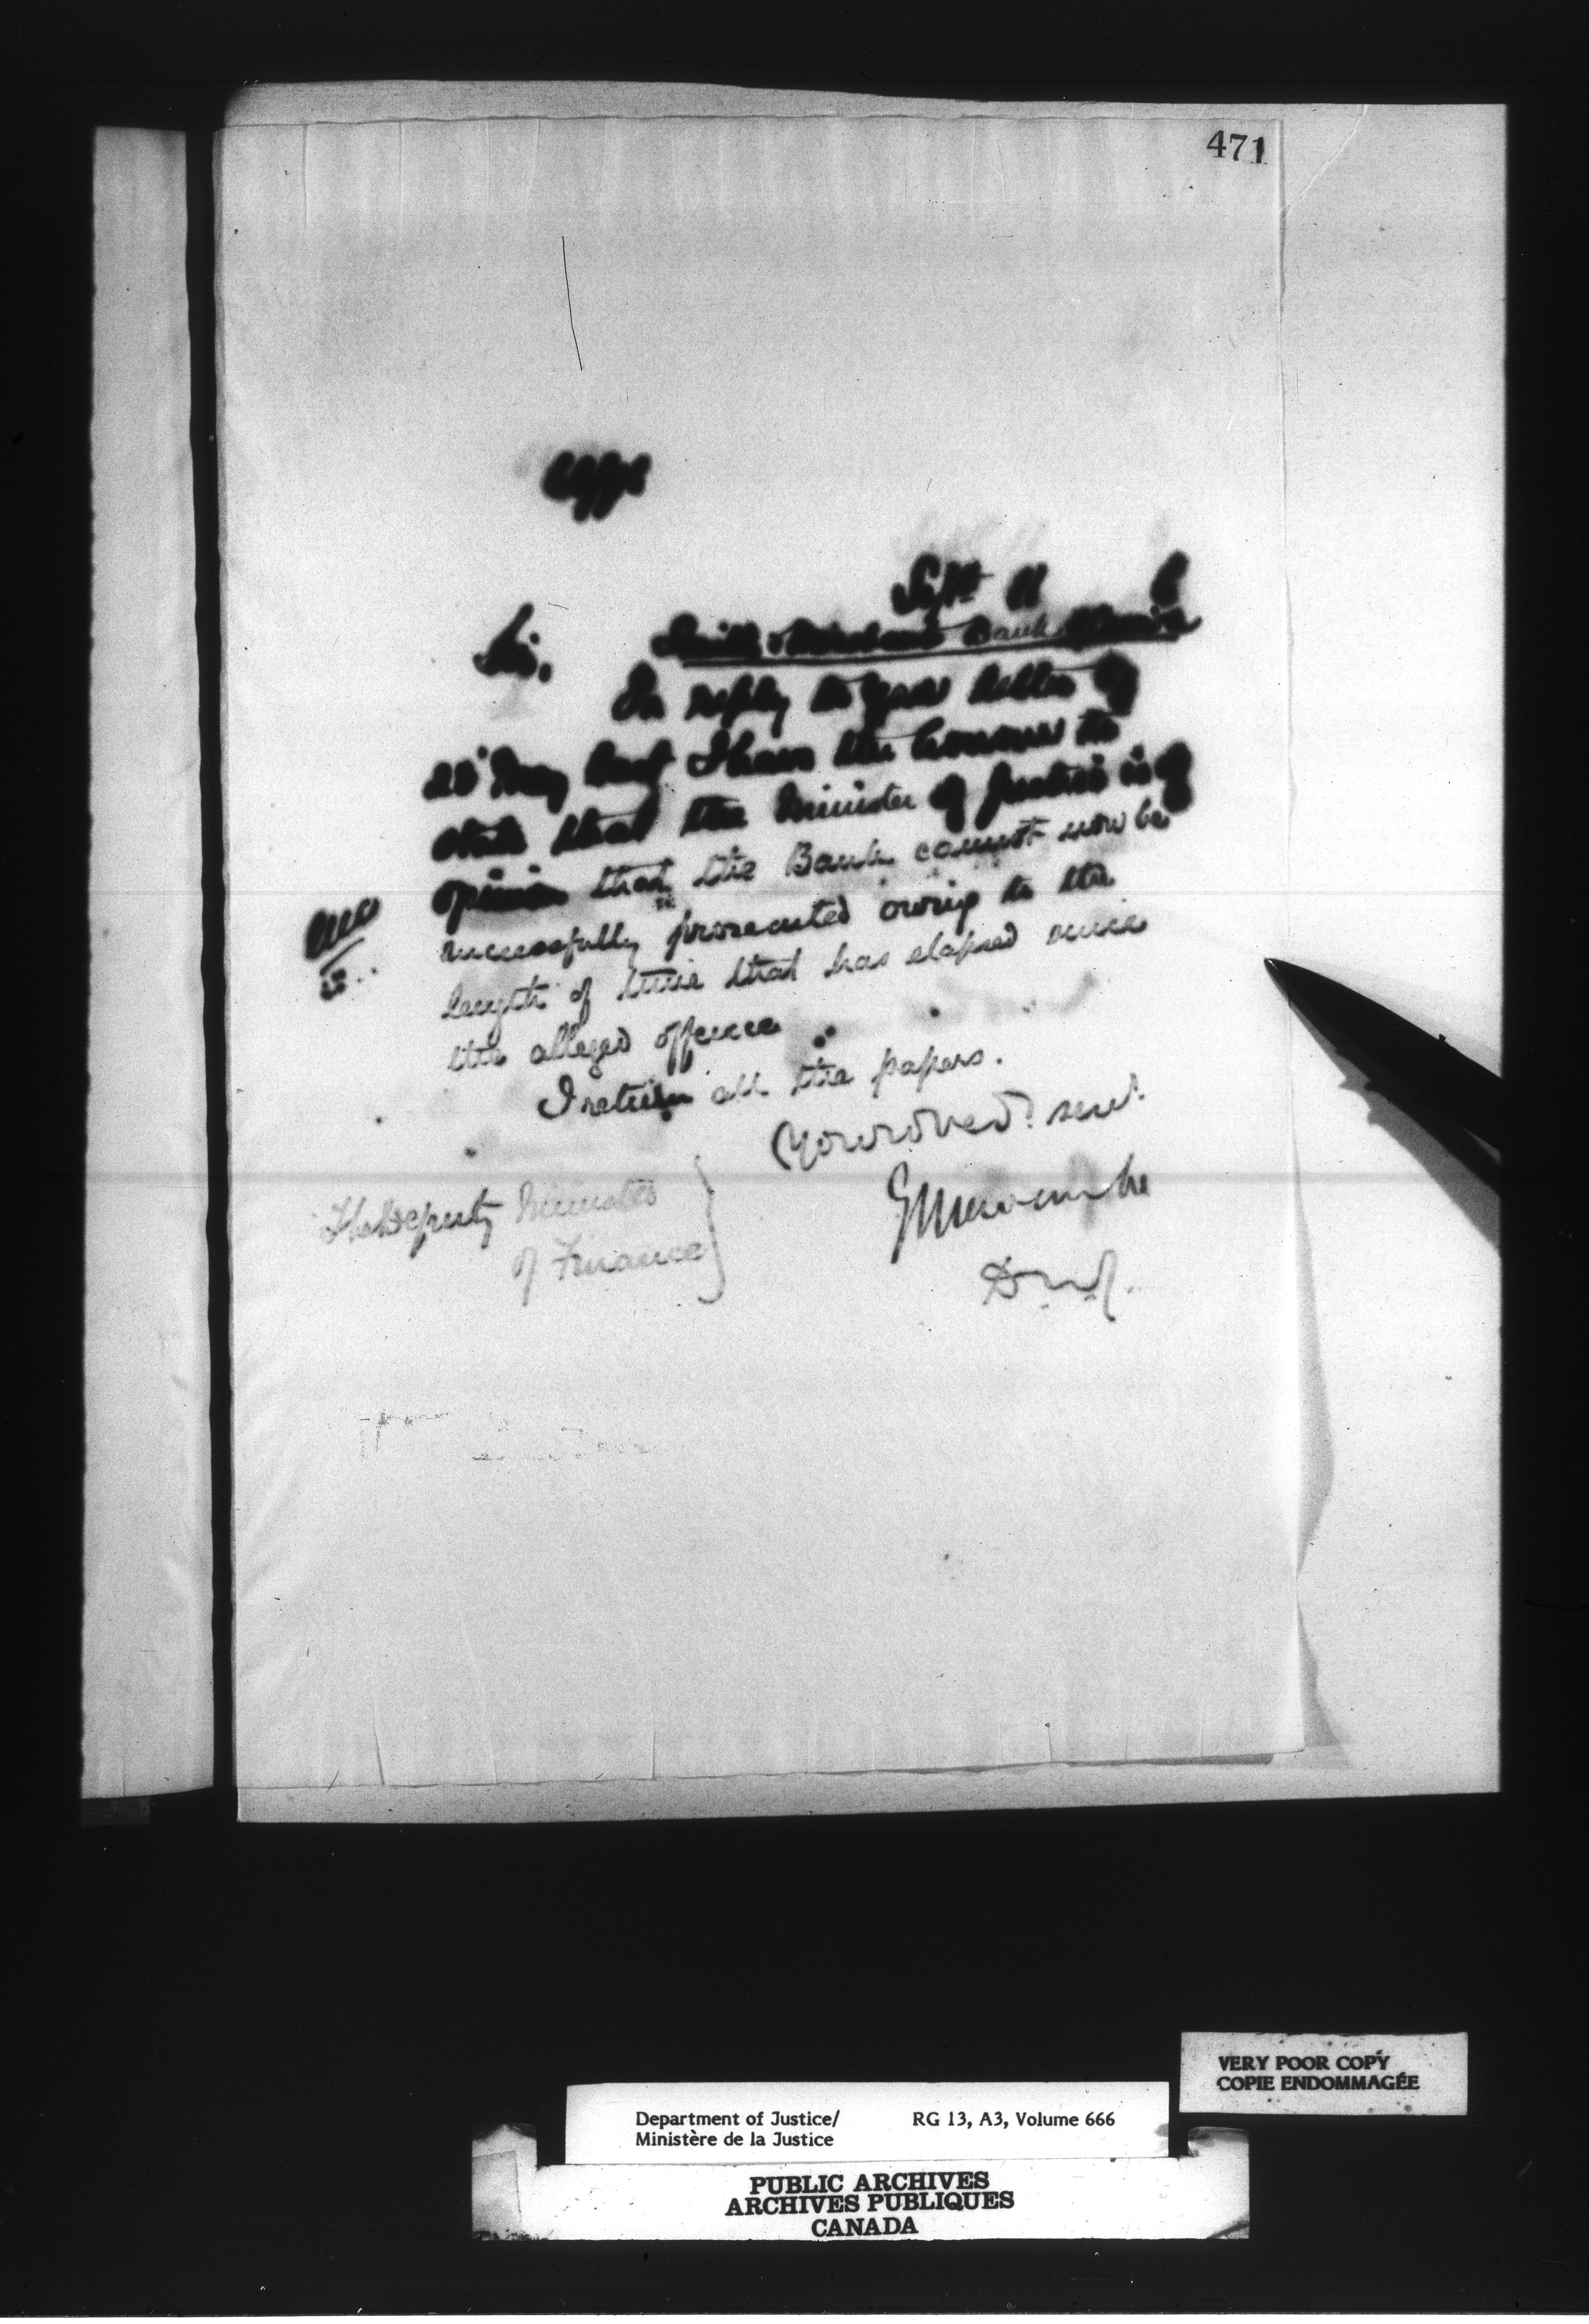 471
Sept 11 6
Sir, Smith & Merchants Bank
In reply to your letter of
25 May last I have the honour to
state that the Minister of Justice is of
opinion that the Bank cannot now be
successfully prosecuted owing to the
length of time that has elapsed since
the alleged offence
I return all the papers.
Your obed. serv.
E L Newcombe
D.M.J.
The Deputy Minister
of Finance
VERY POOR COPY
COPIE ENDOMMAGÉE
Department of Justice/ RG 13, A3, Volume 666
Ministère de la Justice
PUBLIC ARCHIVES
ARCHIVES PUBLIQUES
CANADA